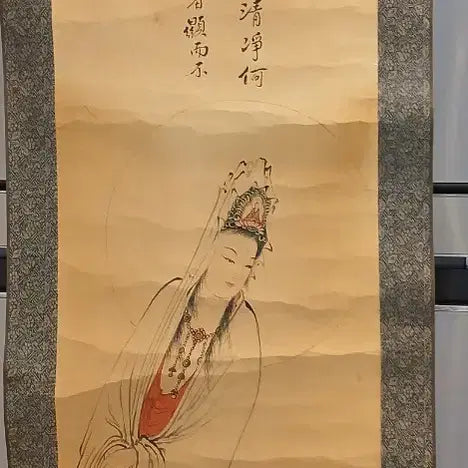 清淨何
顯而不